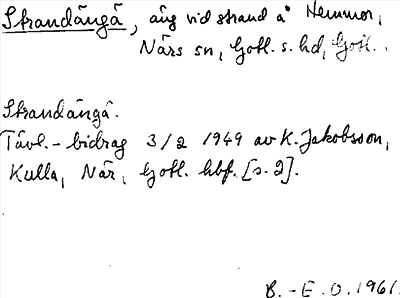 Strandängä, äng vid strand å Hemmor,
Närs sn, Gotl. s. hd, Gotl.
Strandängä.
Tävl.- bidrag 3/2 1949 av K. Jakobsson,
Kulla, När, Gotl. hbf. [s. 2].
B.-E. O. 1961.